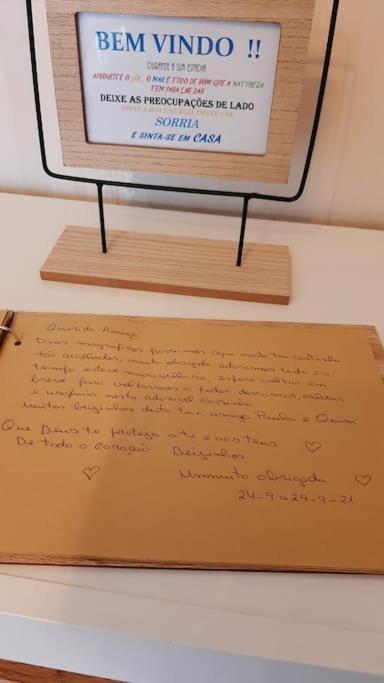 BEM VINDO !!
DURANTE A SUA ESTADIA
APROVEITE O SOL, O MAR E TUDO DE BOM QUE A NATUREZA
TEM PARA LHE DAR
DEIXE AS PREOCUPAÇÕES DE LADO
SINTA A BOA ENERGIA DESTE LAR
SORRIA
E SINTA-SE EM CASA
Querida Amiga
Dias magníficos passamos aqui nesta tua casinha
tão acolhedor, muito obrigado adoramos tudo e o
tempo esteve maravilhoso, espero voltar em
breve para voltarmos a poder descansar,
e usufruir nesta adorável casinha
muitos beijinhos desta tua amiga Paula e Quim
Que Deus te proteja a ti e aos teus
De todo o coração Beijinhos
Mmmuito obrigada
24-9 a 29-9-21